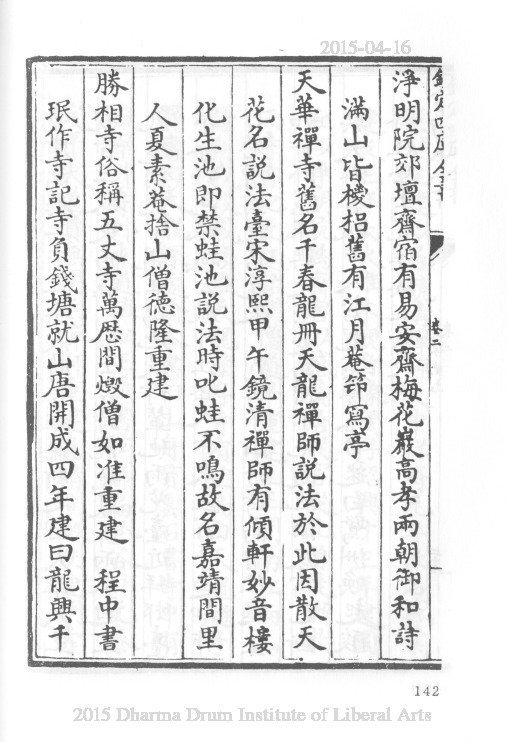 2015-04-16
淨明院郊壇齋宿有易安齋梅花巖高孝兩朝御和詩
滿山皆杈桕舊有江月菴筇寫亭
天華禪寺舊名千春龍冊天龍禪師説法於此因散天
花名説法臺宋淳熙甲午鏡清禪師有傾軒妙音樓
化生池即禁蛙池説法時叱蛙不鳴故名嘉靖間里
人夏素菴捨山僧德隆重建
勝相寺俗稱五丈寺萬歴間燬僧如准重建 程中書
珉作寺記寺負錢塘就山唐開成四年建曰龍興千
卷二
142
2015 Dharma Drum Institute of Liberal Arts